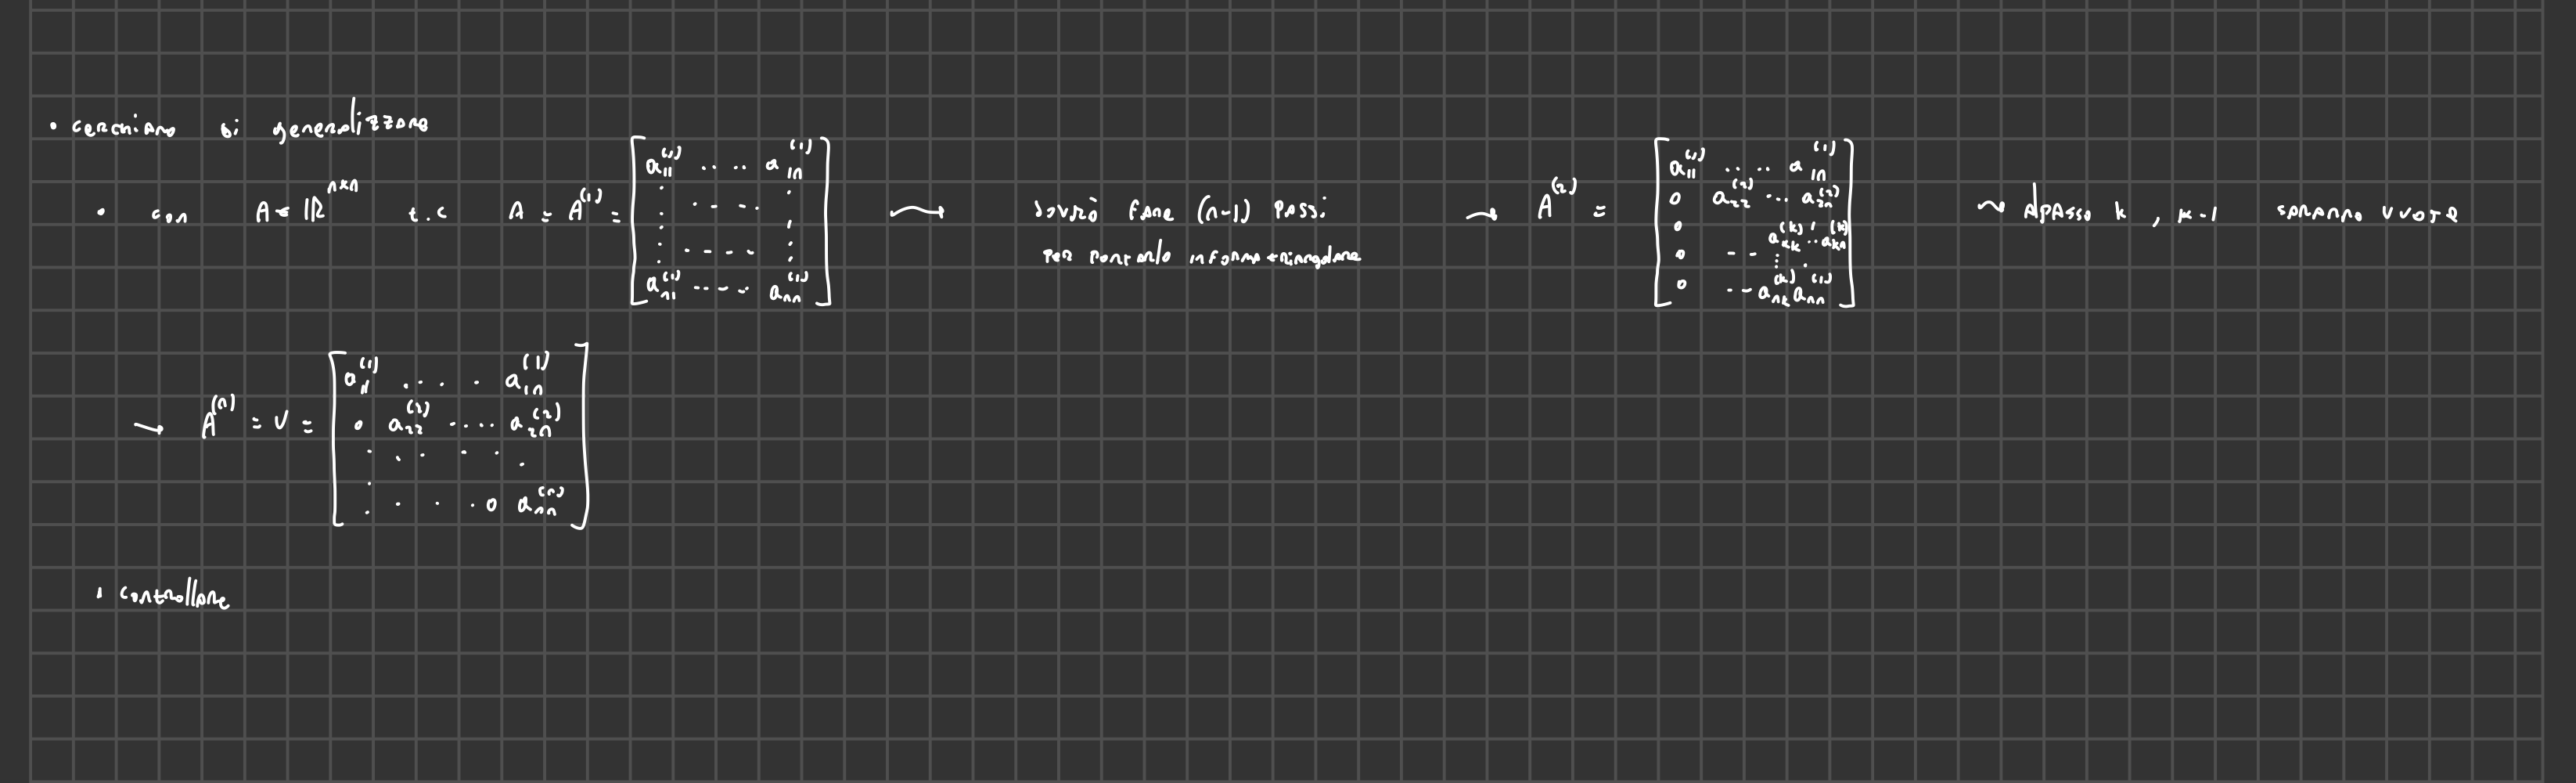 • cerchiamo di generalizzare
• con A ∈ ℝ^{n×n} t.c A = A^{(1)} = [ a_{11}^{(1)} .... a_{1n}^{(1)} ; . . - - . . ; . - - - - . ; a_{n1}^{(1)} ..... a_{nn}^{(1)} ] → dovrò fare (n-1) passi
per portarlo in forma triangolare
→ A^{(2)} = [ a_{11}^{(1)} .... a_{1n}^{(1)} ; 0 a_{22}^{(2)} ... a_{2n}^{(2)} ; 0 a_{kk}^{(k)} .. a_{kn}^{(k)} ; 0 - - ⋮ . ; 0 - - a_{nk}^{(k)} a_{nn}^{(1)} ] ~ Al passo k , k-1 saranno vuote
→ A^{(n)} = U = [ a_{11}^{(1)} .... a_{1n}^{(1)} ; 0 a_{22}^{(2)} .... a_{2n}^{(2)} ; . . . . . . ; . . . . 0 a_{nn}^{(n)} ]
• controllare